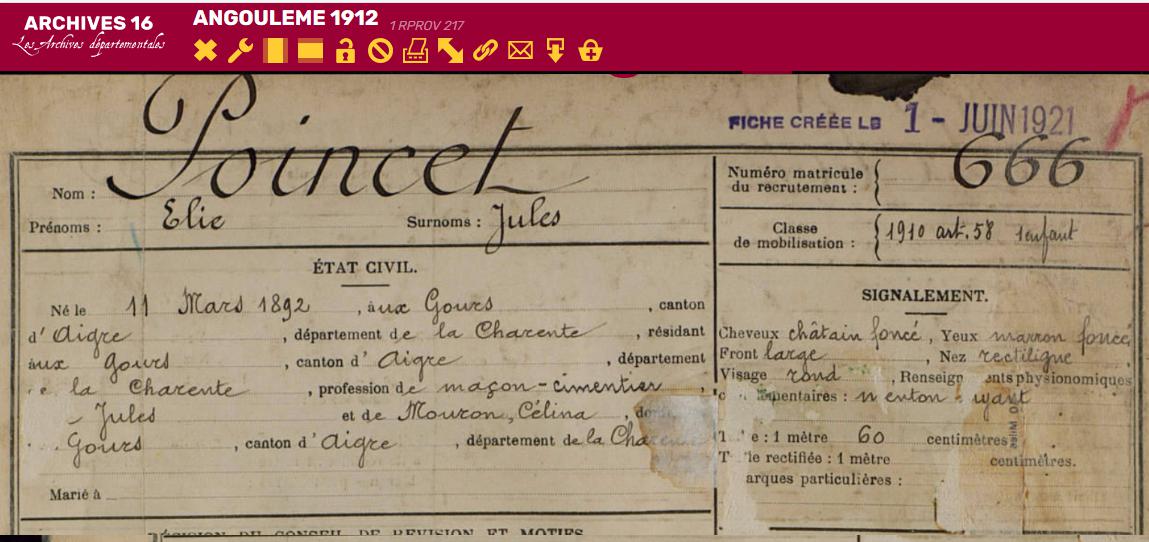 ARCHIVES 16
Les Archives départementales
ANGOULEME 1912 1 RPROV 217
FICHE CRÉÉE LE 1 - JUIN 1921
Nom : Poincet
Prénoms : Elie Surnoms : Jules
Numéro matricule du recrutement : 666
Classe de mobilisation : 1910 art. 58 1 enfant
ÉTAT CIVIL.
Né le 11 Mars 1892, aux Gours, canton
d'Aigre, département de la Charente, résidant
aux Gours, canton d'Aigre, département
e la Charente, profession de maçon-cimentier,
Jules et de Mouron, Célina, do
Gours, canton d'Aigre, département de la Cha
Marié à
SIGNALEMENT.
Cheveux châtain foncé, Yeux marron foncé
Front large, Nez rectiligne
Visage rond, Renseign ents physionomiques
mentaires : m enton uyant
T e : 1 mètre 60 centimètres
T le rectifiée : 1 mètre centimètres.
arques particulières :
CISION DU CONSEIL DE REVISION ET MOTIFS